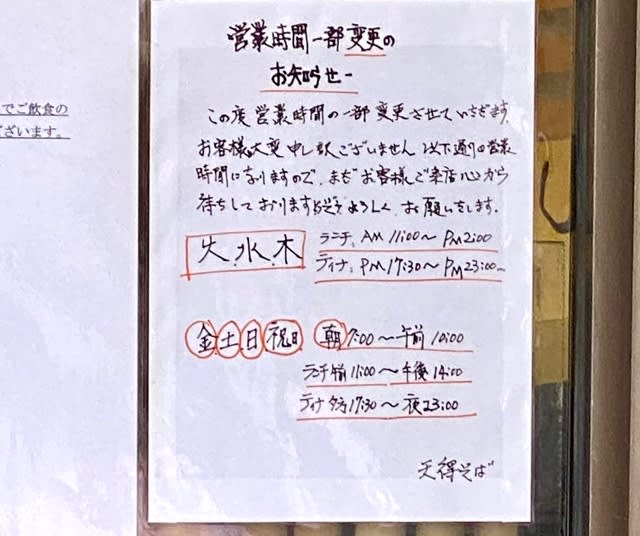 でご飲食の
ございます。
営業時間一部変更の
お知らせ-
この度営業時間の一部変更させていただきます。
お客様大変申し訳ございません以下通りの営業
時間になりますので、またお客様ご来店心から
待ちしております どうぞよろしく、お願いをします。
火.水.木
ランチ、AM 11:00〜 PM2:00
ディナ、PM 17:30〜 PM23:00
金土日祝日
朝7:00〜午前10:00
ランチ午前11:00〜午後14:00
ディナ夕方17:30〜夜23:00
天得そば